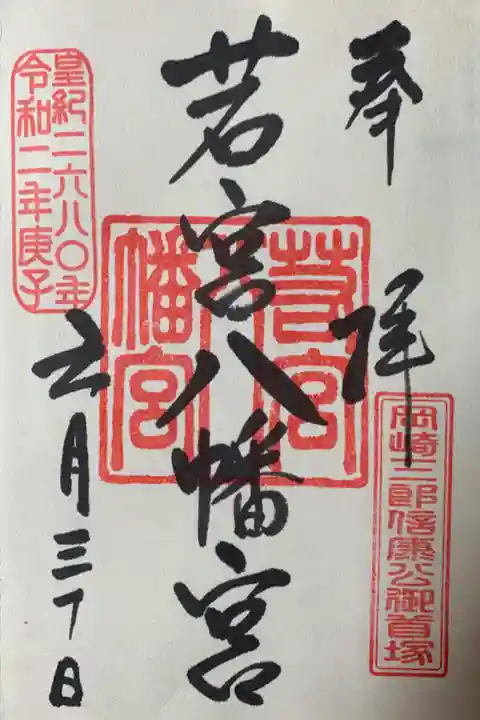 奉拝
岡崎三郎信康公御首塚
若宮八幡宮
若宮八幡宮
皇紀二六八〇年
令和二年庚子
月三十日